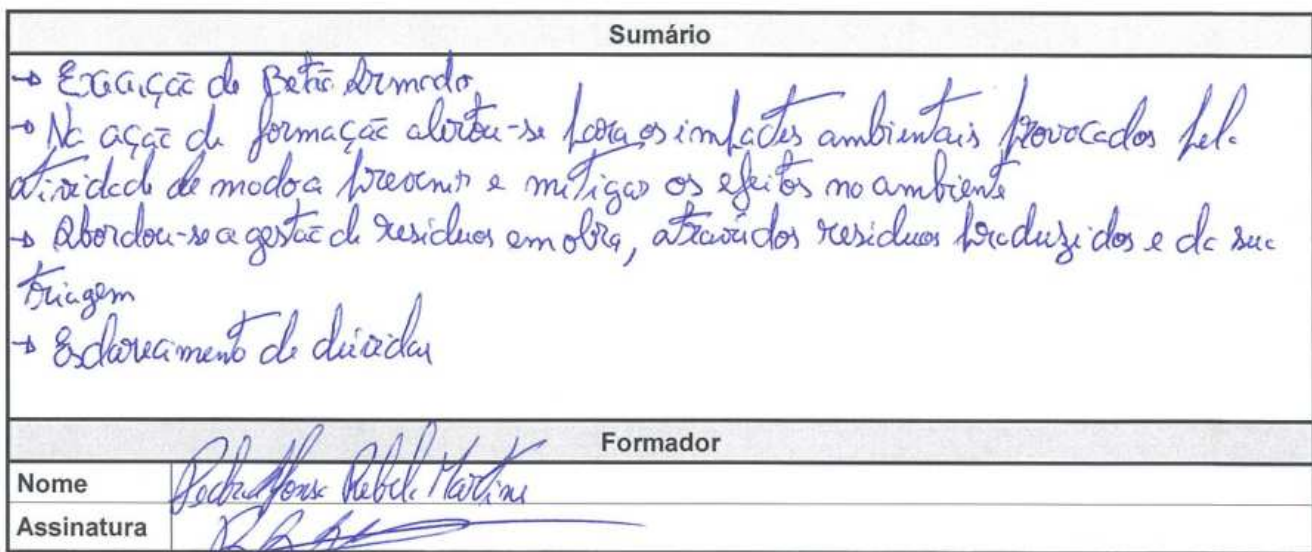 Sumário
→ Execução de Betão Armado
→ Na ação de formação alertou-se para os impactes ambientais provocados pela
atividade de modo a prevenir e mitigar os efeitos no ambiente
→ Abordou-se a gestão de resíduos em obra, através dos resíduos produzidos e da sua
triagem
→ Esclarecimento de dúvidas
Formador
Nome Pedro Afonso Rebelo Martins
Assinatura